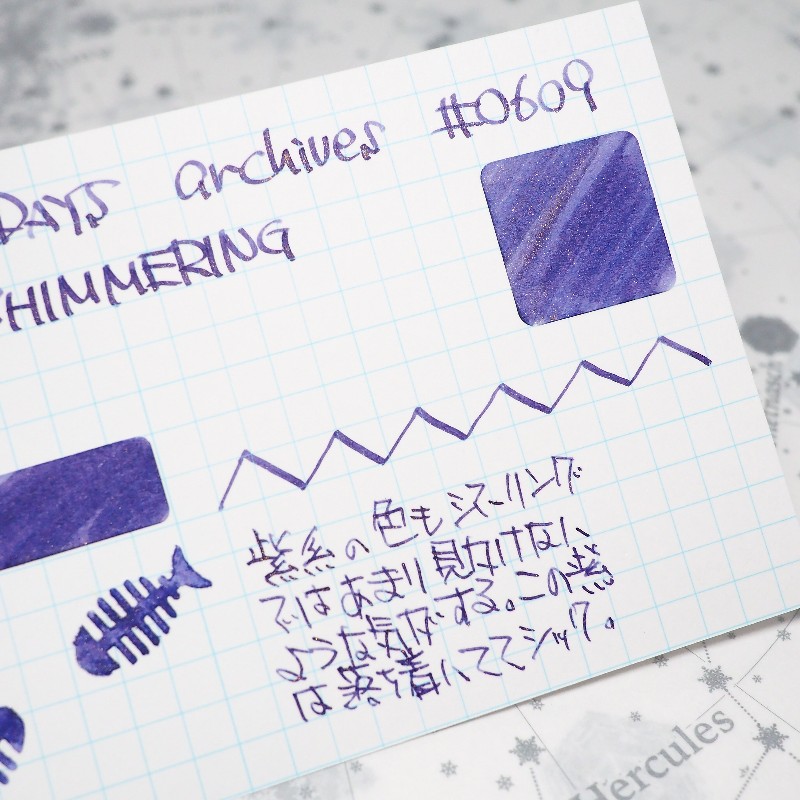 DAYS archives #0609
SHIMMERING
紫系の色もシマーリング
ではあまり見かけない
ような気がする。この紫
は落ち着いててシック。
Hercules